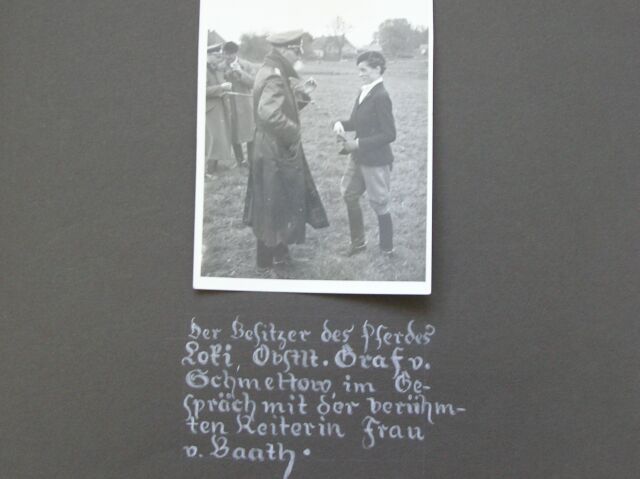 Der Besitzer des Pferdes
Loki, Obstlt. Graf v.
Schmettow, im Ge-
spräch mit der berühm-
ten Reiterin Frau
v. Baath.